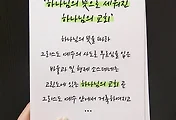 '하나님의 뜻으로 세워진
하나님의 교회'
하나님의 뜻을 따라
그리스도 예수의 사도로 부르심을 입은
바울과 및 형제 소스데네는
고린도에 있는 하나님의 교회 곧
그리스도 예수 안에서 거룩하여지고
...